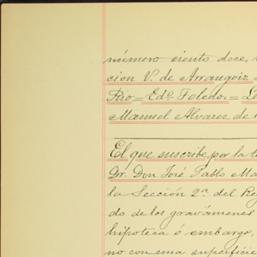 número ciento doce,
cion V. de Arrangoiz
Rio = Edo. Toledo. =
Manuel Alvarez de
El que suscribe por la
Dr. Don José Pablo
la Sección 2ª. del
do de los gravámenes
hipoteca ó embargo,
no con una superficie